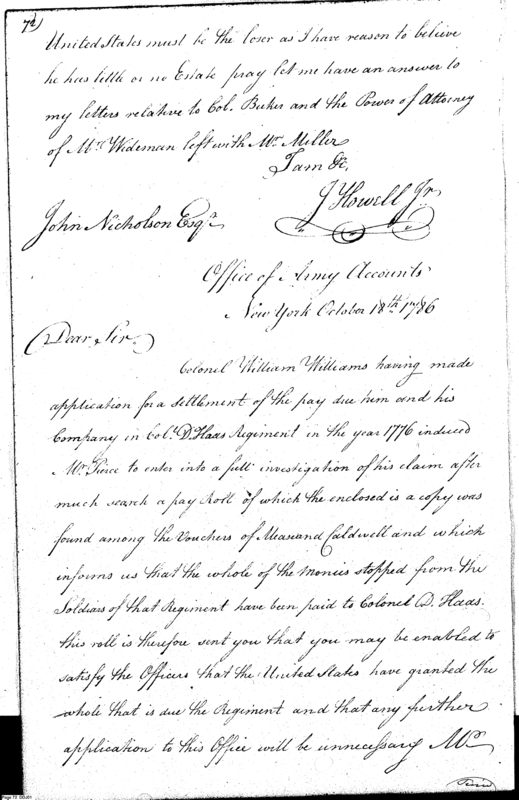 72)
United States must be the loser as I have reason to believe
he has little or no Estate pray let me have an answer to
my letters relative to Col. Buker and the Power of Attorney
of Mrs Wideman left with Mr. Miller
I am &c.
J Howell Jr
John Nicholson Esqr.
Office of Army Accounts
New York October 18th 1786
Dear Sir
Colonel William Williams having made
application for a settlement of the pay due him and his
Company in Colo. D Haas Regiment in the year 1776 induced
Mr. Pierce to enter into a full investigation of his claim after
much search a pay Roll of which the enclosed is a copy was
found among the Vouchers of Mease and Caldwell and which
informs us that the whole of the monies stopped from the
Soldiers of that Regiment have been paid to Colonel D. Haas.
this roll is therefore sent you that you may be enabled to
satisfy the Officers that the United States have granted the
whole that is due the Regiment and that any further
application to this Office will be unnecessary Mr.